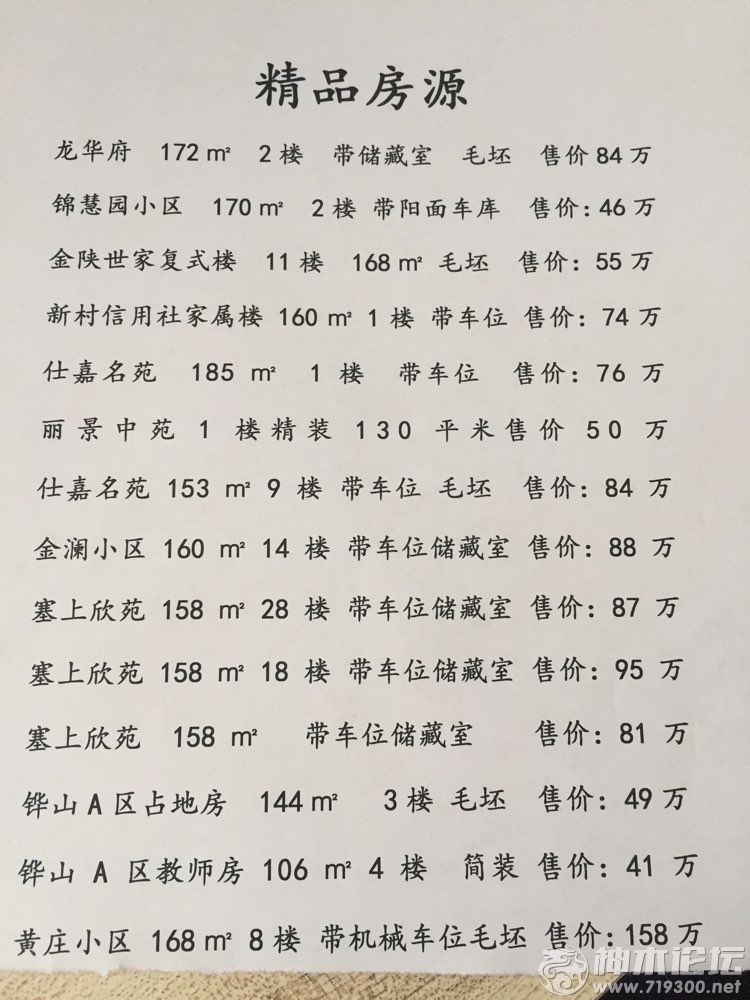 精品房源
龙华府 172㎡ 2楼 带储藏室 毛坯 售价84万
锦慧园小区 170㎡ 2楼 带阳面车库 售价:46万
金陕世家复式楼 11楼 168㎡ 毛坯 售价:55万
新村信用社家属楼 160㎡ 1楼 带车位 售价:74万
仕嘉名苑 185㎡ 1楼 带车位 售价:76万
丽景中苑 1楼精装 130平米售价 50万
仕嘉名苑 153㎡ 9楼 带车位 毛坯 售价:84万
金澜小区 160㎡ 14楼 带车位储藏室 售价:88万
塞上欣苑 158㎡ 28楼 带车位储藏室 售价:87万
塞上欣苑 158㎡ 18楼 带车位储藏室 售价:95万
塞上欣苑 158㎡ 带车位储藏室 售价:81万
铧山A区占地房 144㎡ 3楼 毛坯 售价:49万
铧山A区教师房 106㎡ 4楼 简装 售价:41万
黄庄小区 168㎡ 8楼 带机械车位毛坯 售价:158万
神木论坛
www.719300.net